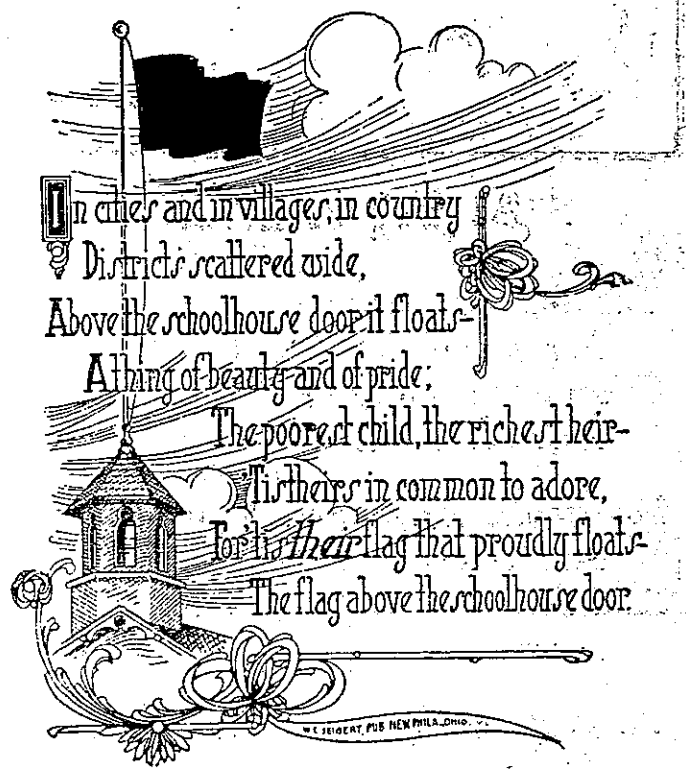 In cities and in villages, in country
Districts scattered wide,
Above the schoolhouse door it floats-
A thing of beauty and of pride;
The poorest child, the richest heir-
'Tis theirs in common to adore,
For 'tis their flag that proudly floats-
The flag above the schoolhouse door.
W.C. SEIBERT, PUB. NEW PHILA., OHIO.